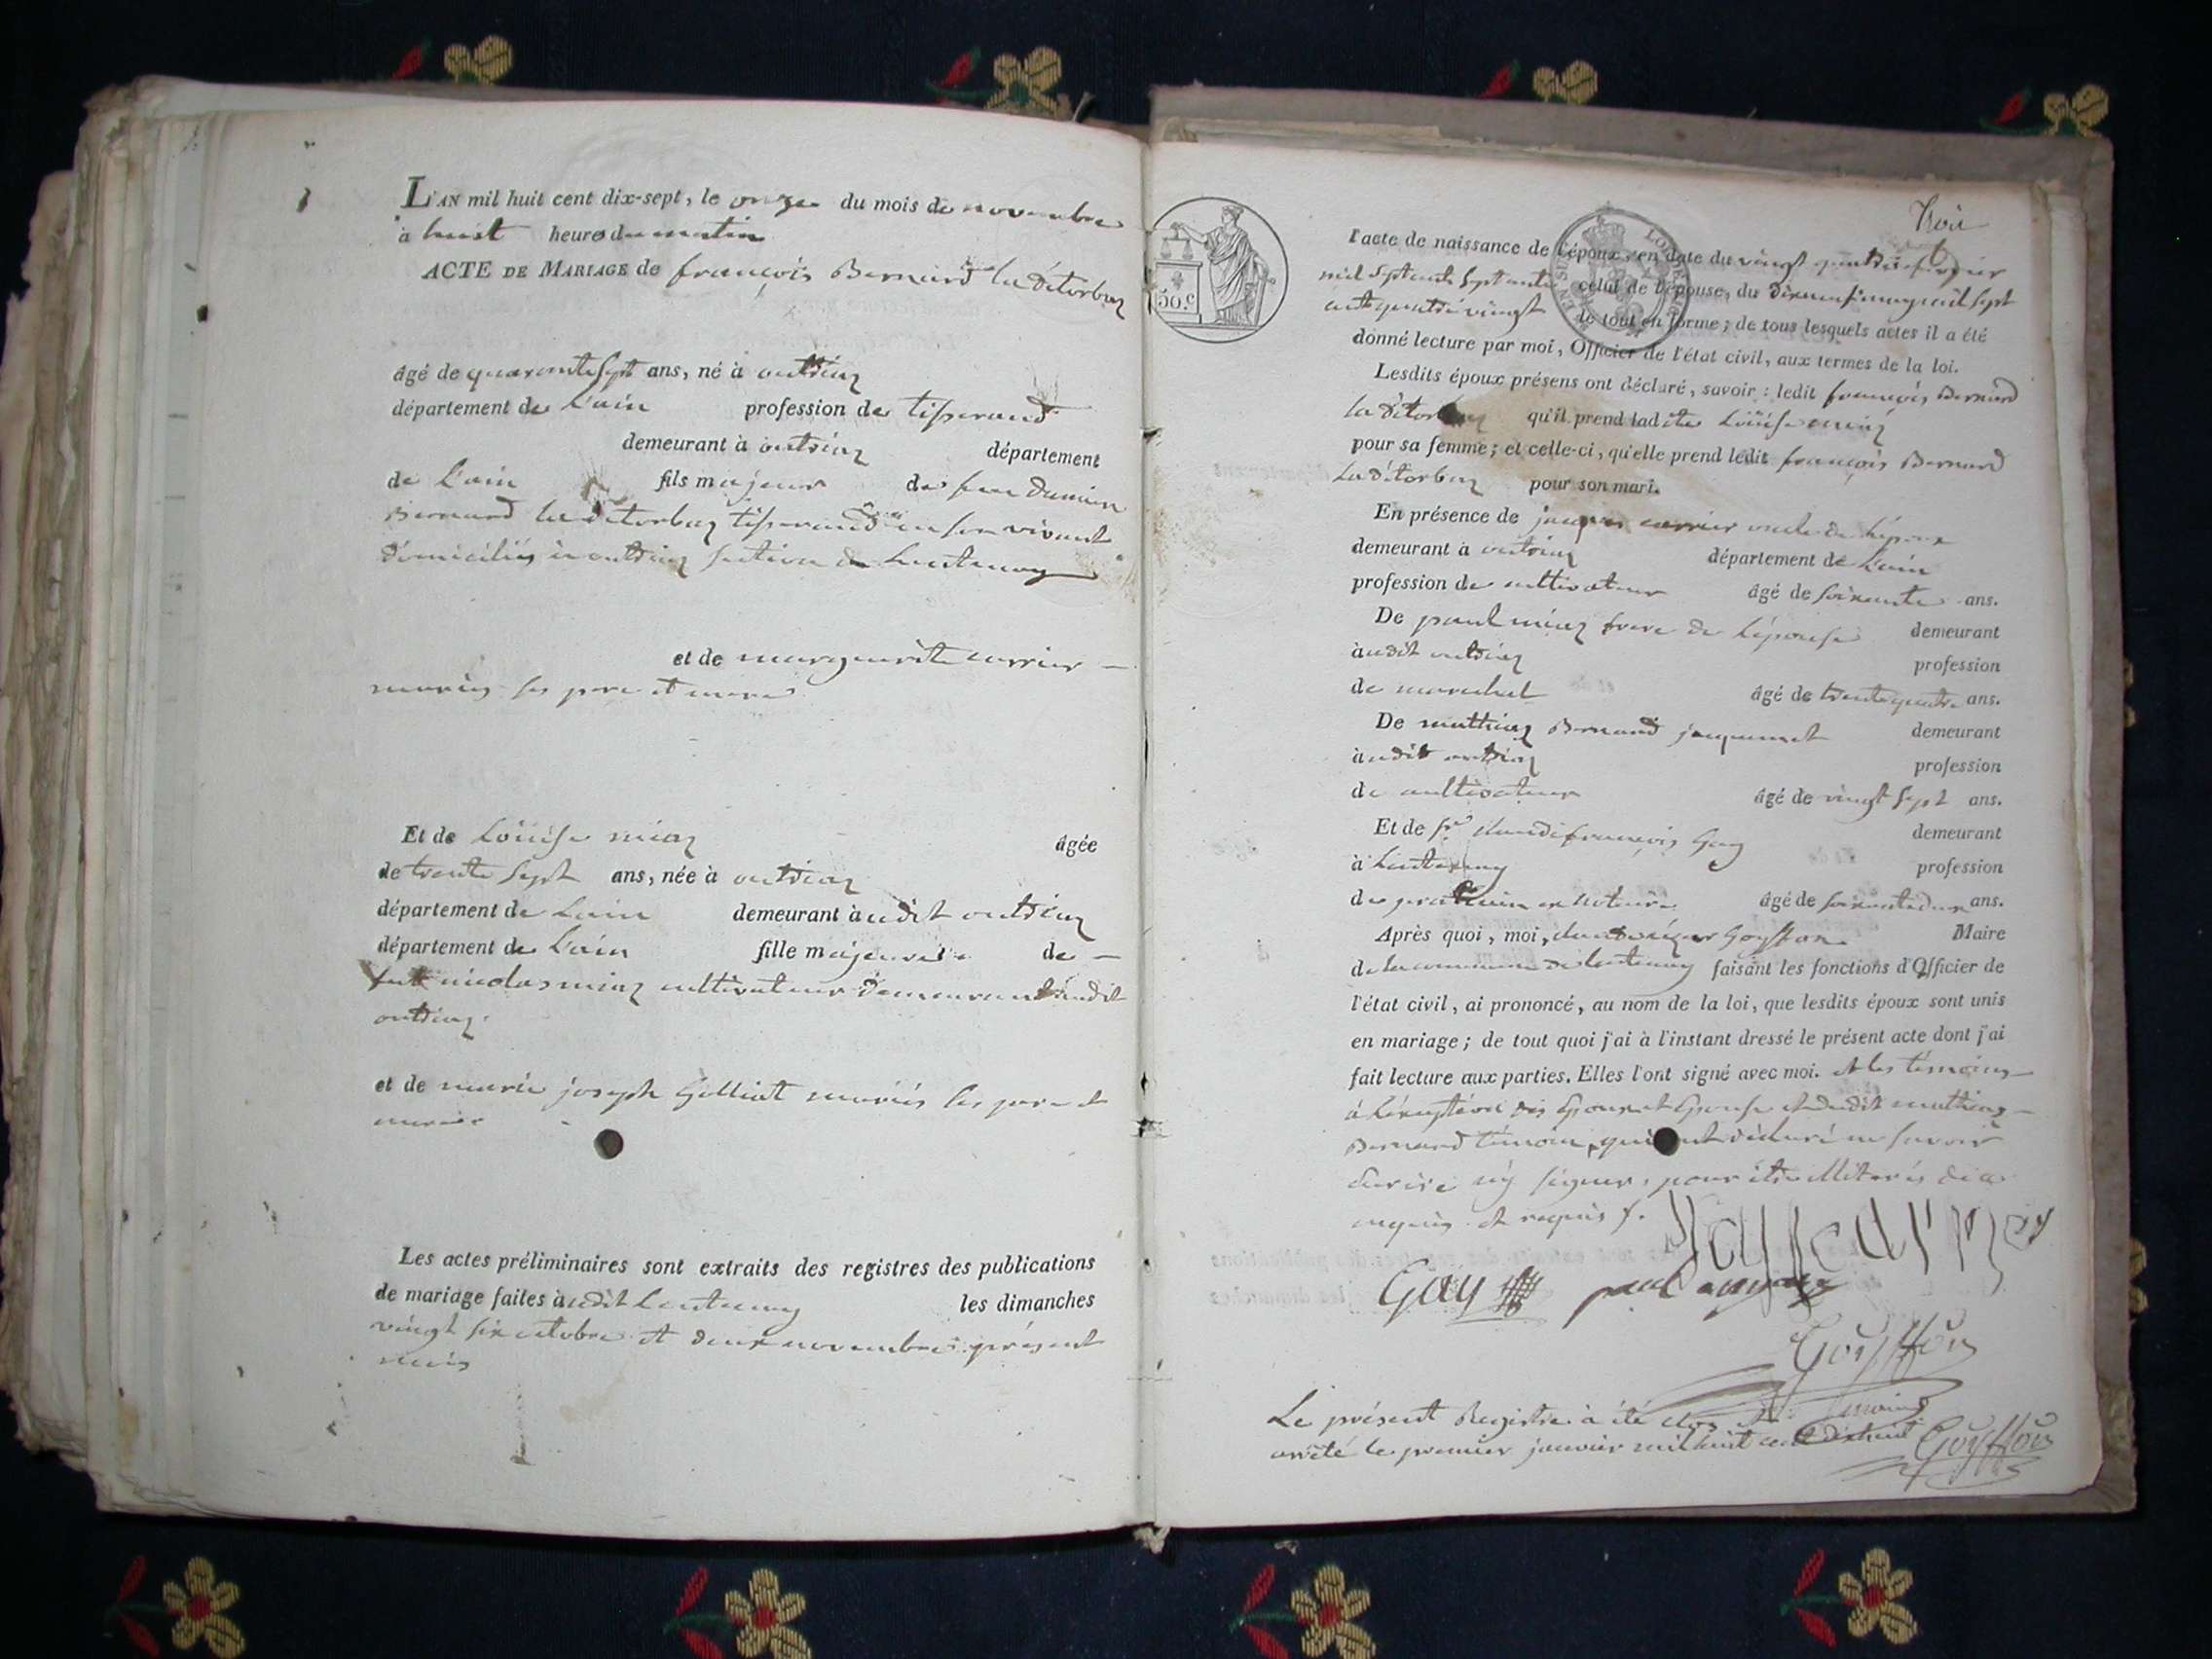 L'AN mil huit cent dix-sept, le onze du mois de novembre
à huit heures du matin
ACTE DE MARIAGE de françois Bernard la détorbaz
âgé de quarante sept ans, né à outriaz
département de L'ain profession de tisserand
demeurant à outriaz département
de L'ain fils majeur de feu
Bernard la détorbaz tisserand en son vivant
domiciliés à outriaz section de Lantenay
et de marguerite carrier
mariés ses pere et mere
Et de Loüise miaz âgée
de trente sept ans, née à outriaz
département de Lain demeurant audit outriaz
département de L'ain fille majeure de
nicolas miaz cultivateur demeurant audit
outriaz.
et de marie joseph Golliat mariés les pere et
mere
Les actes préliminaires sont extraits des registres des publications
de mariage faites audit Lantenay les dimanches
vingt six octobre et deux novembre présent
mois
l'acte de naissance de l'époux, en date du vingt
mil sept cent septante celui de l'épouse, du mil sept
cent quatre vingt le tout en forme ; de tous lesquels actes il a été
donné lecture par moi, Officier de l'état civil, aux termes de la loi.
Lesdits époux présens ont déclaré, savoir : ledit françois Bernard
la détorbaz qu'il prend ladite Loüise miaz
pour sa femme ; et celle-ci, qu'elle prend ledit françois Bernard
La détorbaz pour son mari.
En présence de jacques carrier oncle de L'époux
demeurant à outriaz département de L'ain
profession de cultivateur âgé de soixante ans.
De paul miaz frere de L'épouse demeurant
audit outriaz profession
de marechal âgé de trente quatre ans.
De mathiaz Bernard jacquemet demeurant
audit outriaz profession
de cultivateur âgé de vingt sept ans.
Et de Sr claude françois Gay demeurant
à Lantenay profession
de notaire âgé de soixante deux ans.
Après quoi, moi, Maire
de la commune de lantenay faisant les fonctions d'Officier de
l'état civil, ai prononcé, au nom de la loi, que lesdits époux sont unis
en mariage ; de tout quoi j'ai à l'instant dressé le présent acte dont j'ai
fait lecture aux parties. Elles l'ont signé avec moi. et les témoins
à L'éxception des Epoux et Epouse et dudit mathiaz
Bernard témoin, qui ont déclaré ne savoir
Ecrire ny signer, pour être illiterés de ce
enquis et requis /.
Gay paul
Goyffon
Le présent Registre à été clos et
arrêté le premier janvier mil huit cent dix huit Goyffon
50.c